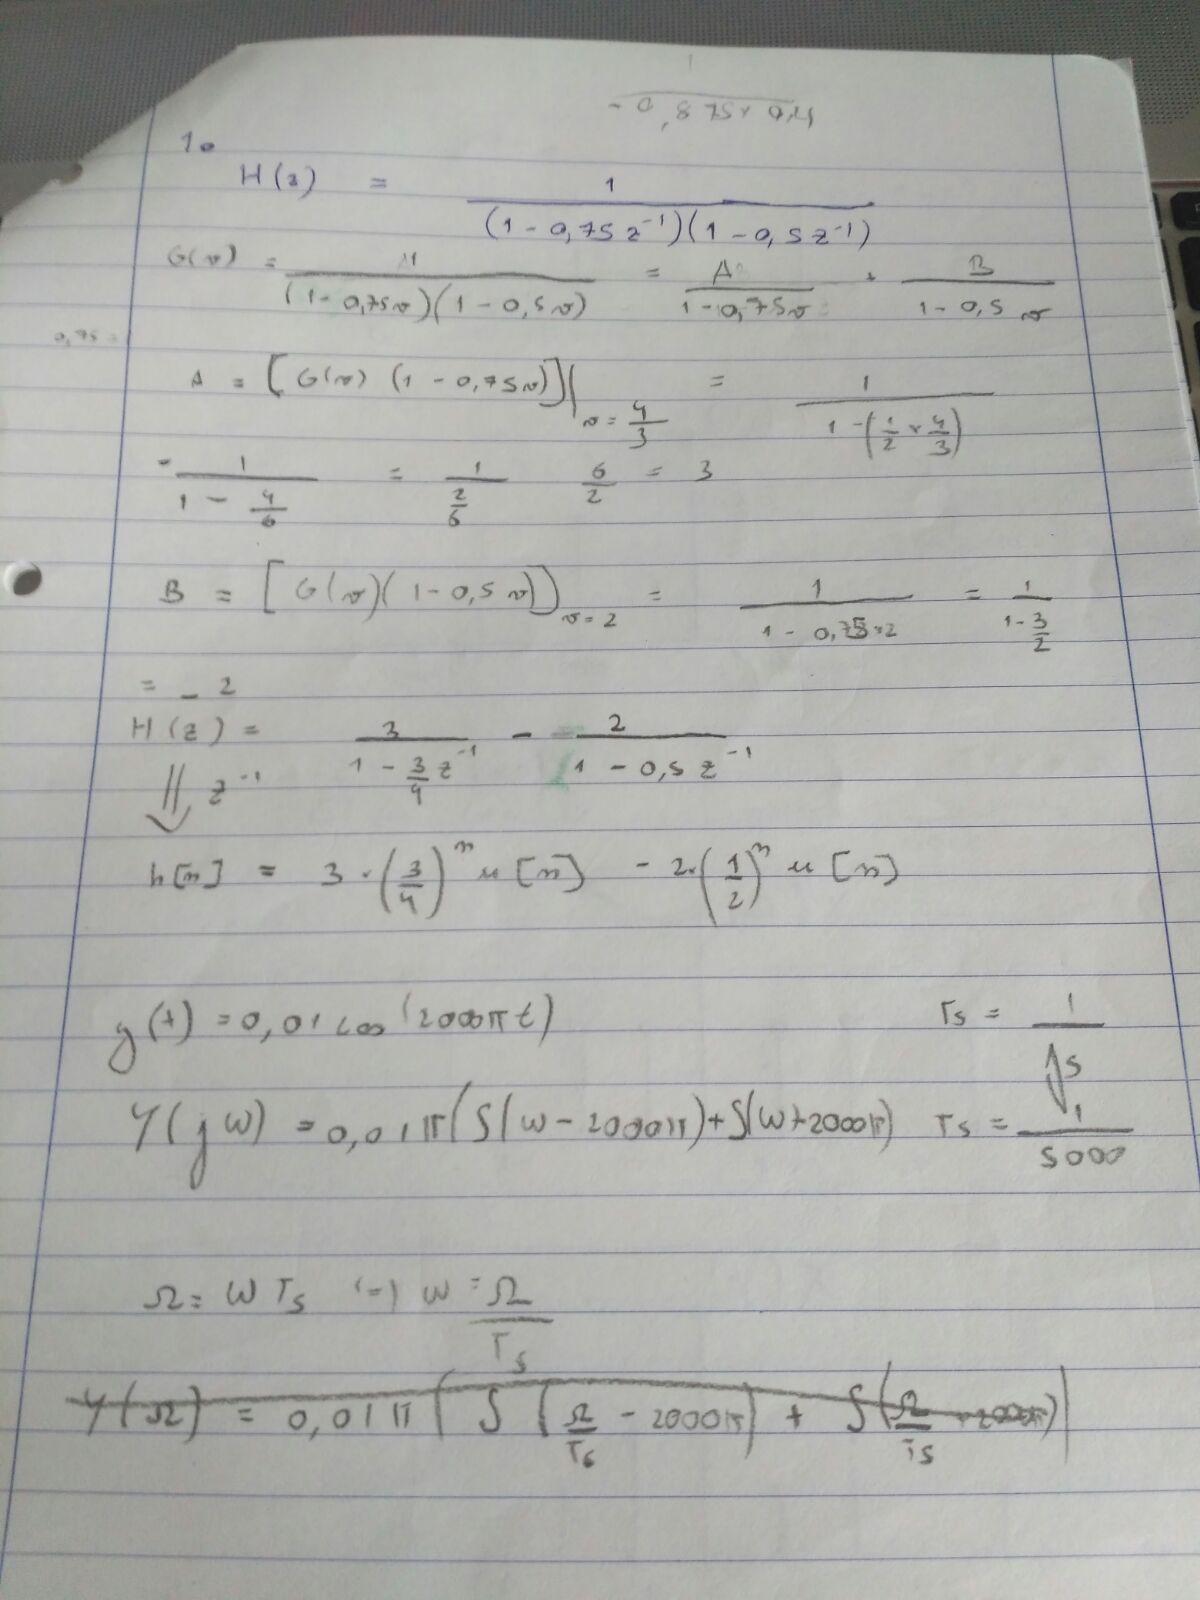 1
- 0,875 × 0,4
1.
H(z) = 1 / ((1 - 0,75 z⁻¹)(1 - 0,5 z⁻¹))
G(v) = 1 / ((1 - 0,75v)(1 - 0,5v)) = A / (1 - 0,75v) + B / (1 - 0,5v)
0,75 =
A = [G(v) (1 - 0,75v)]|v = 4/3 = 1 / (1 - (1/2 × 4/3))
= 1 / (1 - 4/6) = 1 / (2/6) 6/2 = 3
B = [G(v)(1 - 0,5v)]v=2 = 1 / (1 - 0,75×2) = 1 / (1 - 3/2)
= - 2
H(z) = 3 / (1 - 3/4 z⁻¹) - 2 / (1 - 0,5 z⁻¹)
⇓ z⁻¹
h[n] = 3 · (3/4)ⁿ u[n] - 2 · (1/2)ⁿ u[n]
y(t) = 0,01 cos(2000πt) Ts = 1 / fs
Y(jω) = 0,01π(δ(ω - 2000π) + δ(ω + 2000π)) Ts = 1 / 5000
Ω = ω Ts (=) ω = Ω / Ts
Y(Ω) = 0,01π(δ(Ω/Ts - 2000π) + δ(Ω/Ts + 2000π))